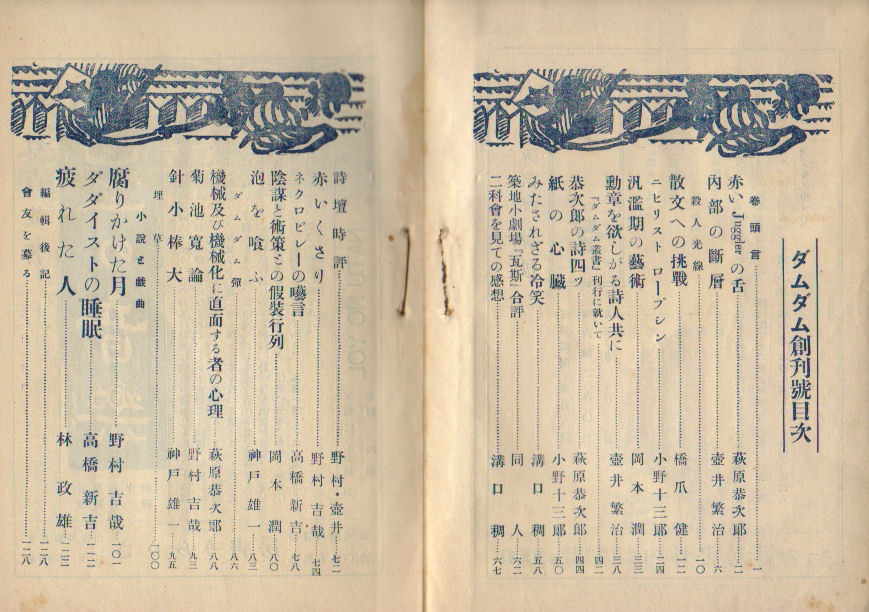 ダムダム創刊號目次
巻頭言 一
赤いJugglerの舌 萩原恭次郎 二
內部の斷層 壺井繁治 六
殺人光線 一〇
散文への挑戰 橋爪健 一二
ニヒリスト ロープシン 小野十三郎 二四
汎濫期の藝術 岡本潤 三三
勳章を欲しがる詩人共に 壺井繁治 三八
『ダムダム叢書』刊行に就いて 四二
恭次郎の詩四ッ 萩原恭次郎 四四
紙の心臟 小野十三郎 五〇
みたされざる冷笑 溝口稠 五八
築地小劇場『瓦斯』合評 同人 六二
二科會を見ての感想 溝口稠 六七
詩壇時評 野村・壺井 七二
赤いくさり 野村吉哉 七四
ネクロピレーの囈言 高橋新吉 七八
陰謀と術策との假裝行列 岡本潤 八〇
泡を喰ふ 神戶雄一 八三
ダムダム彈 八六
機械及び機械化に直面する者の心理 萩原恭次郎 八八
菊池寬論 野村吉哉 九三
針小棒大 神戶雄一 九五
埋草 一〇〇
小說と戲曲
腐りかけた月 野村吉哉 一〇一
ダダイストの睡眠 高橋新吉 一一二
疲れた人 林政雄 一二二
編輯後記 一二八
會友を募る 一二八